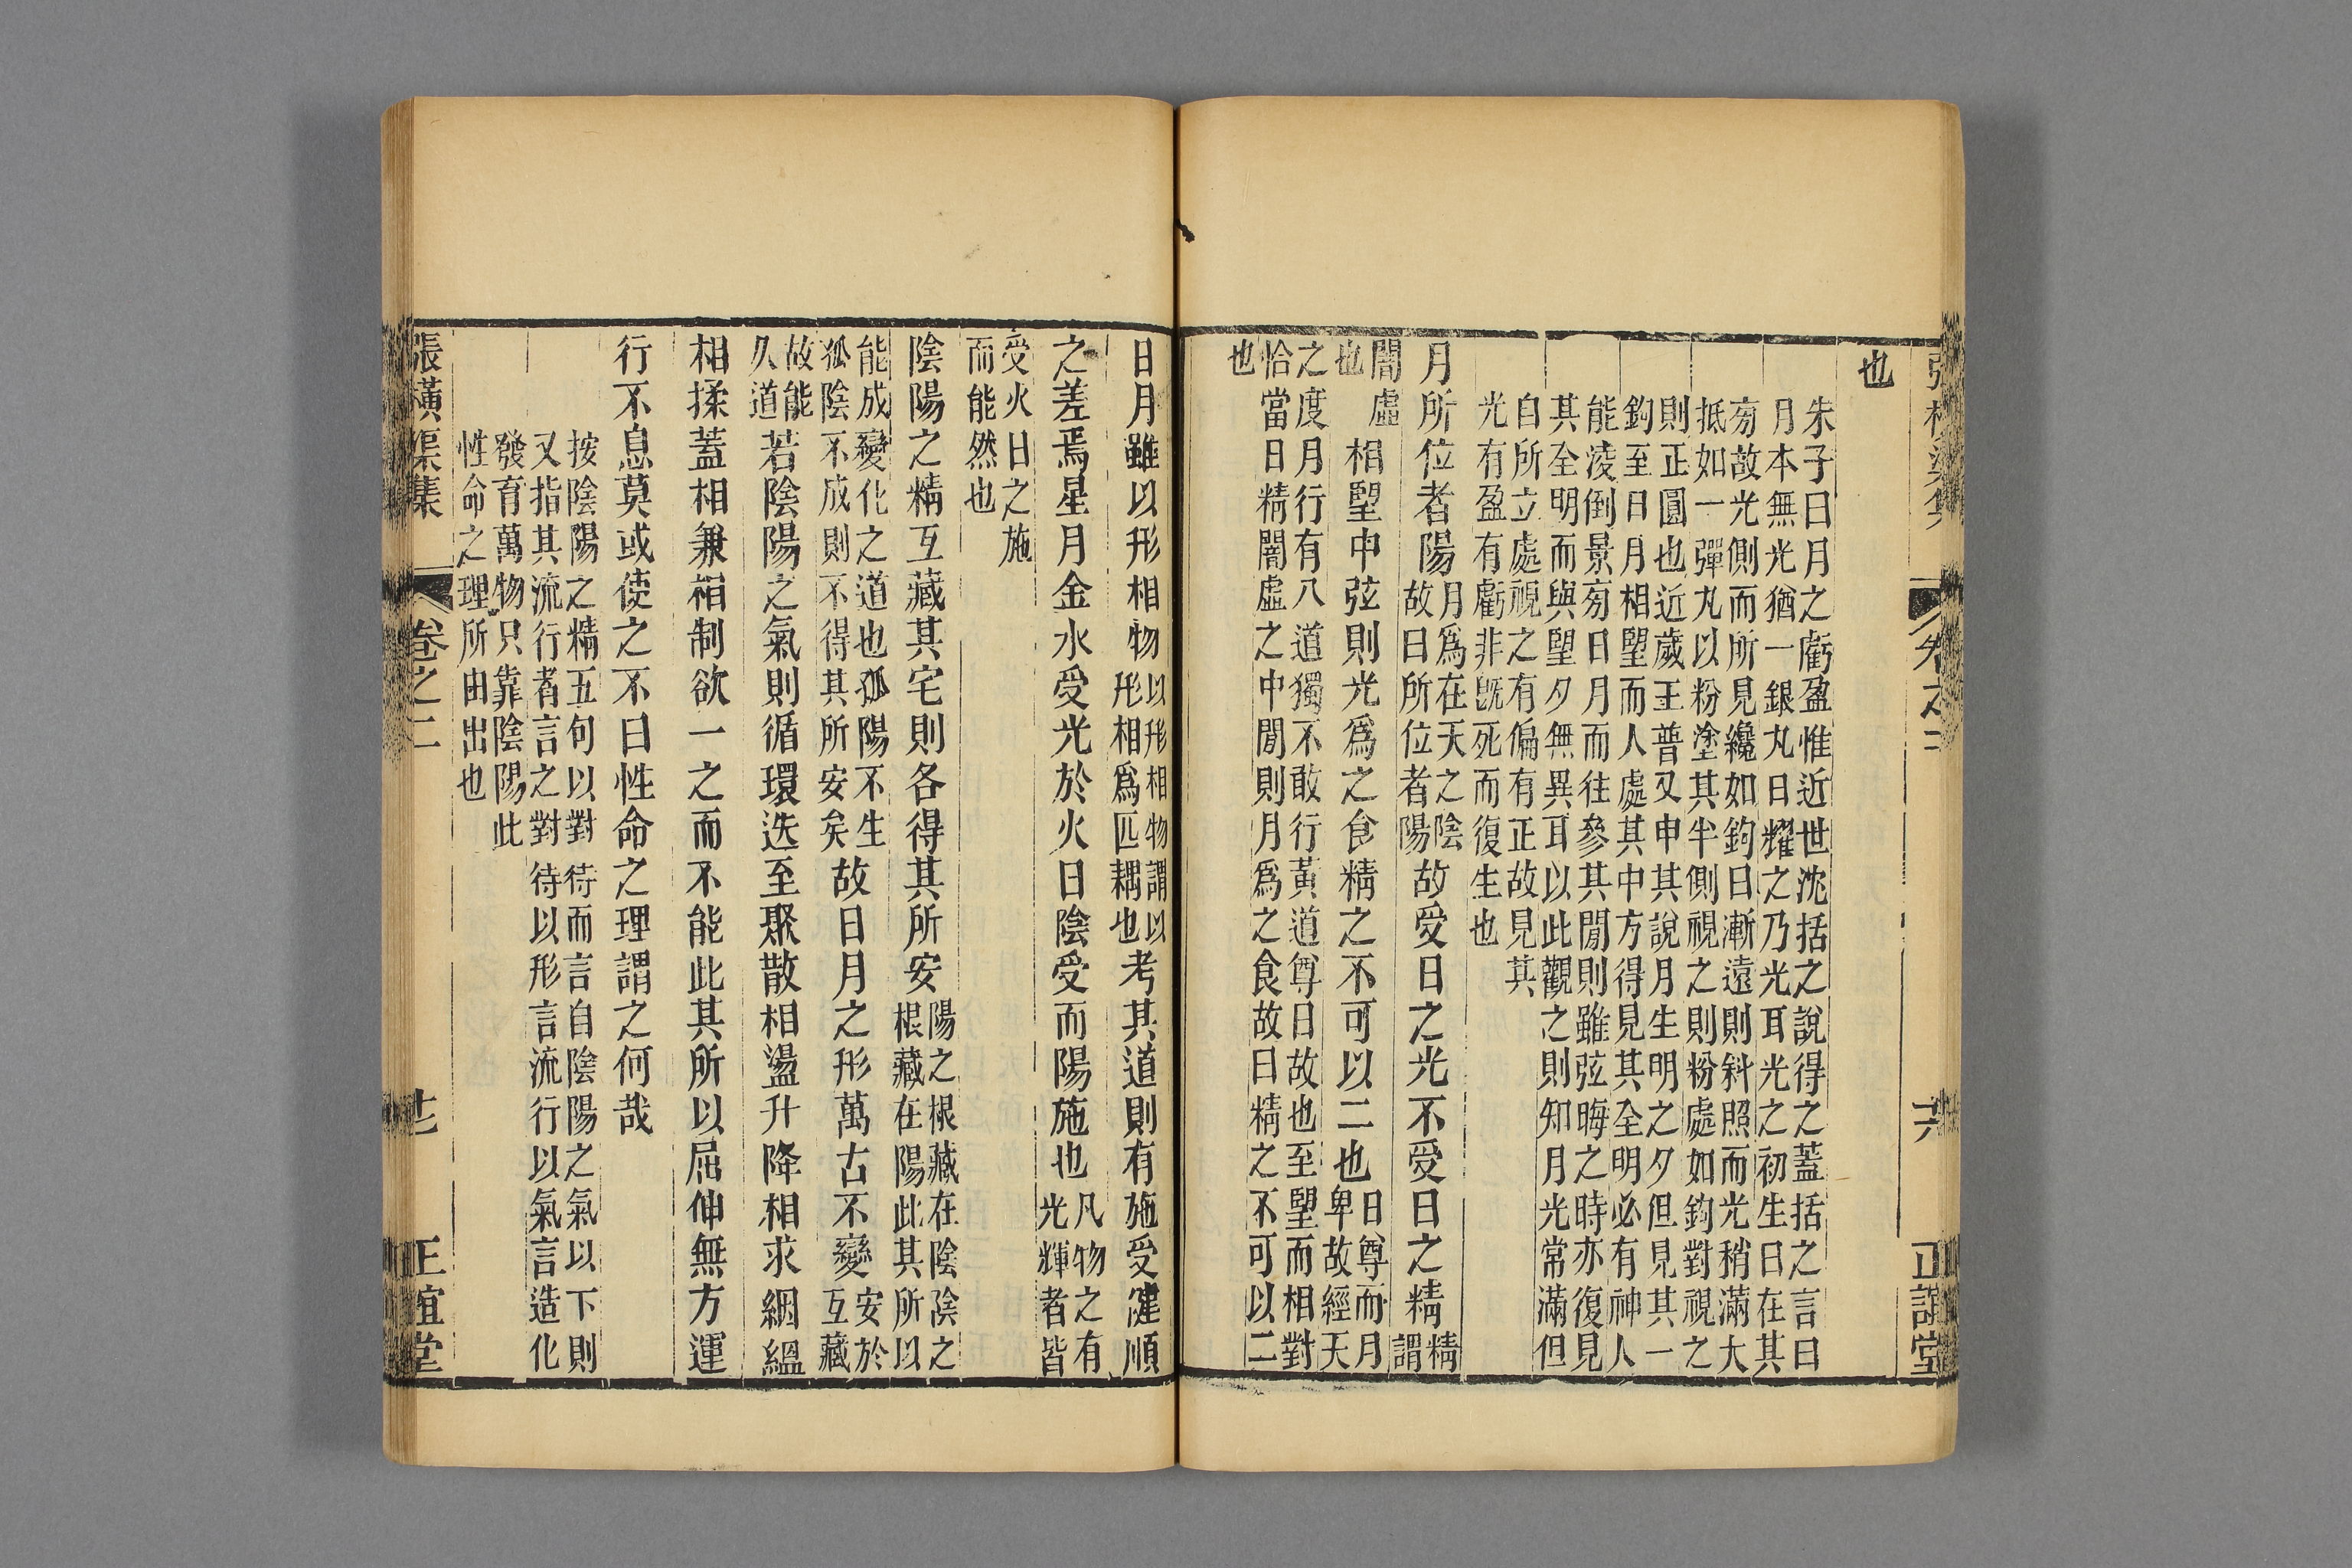 張橫渠集 卷之二 十六 正誼堂
也
朱子曰月之虧盈惟近世沈括之說得之蓋括之言曰
月本無光猶一銀丸日耀之乃光耳光之初生日在其
㫄故光側而所見纔如鉤日漸遠則斜照而光稍滿大
抵如一彈丸以粉塗其半側視之則粉處如鉤對視之
則正圓也近歲王普又申其說月生明之夕但見其一
鉤至日月相望而人處其中方得見其全明必有神人
能凌倒景㫄日月而往參其閒則雖弦晦之時亦復見
其全明而與望夕無異耳以此觀之則知月光常滿但
自所立處視之有偏有正故見其
光有盈有虧非旣死而復生也
月所位者陽月爲在天之陰故曰所位者陽故受日之光不受日之精精謂
闇虛也相望中弦則光爲之食精之不可以二也日尊而月卑故經天
之度月行有八道獨不敢行黃道尊日故也至望而相對
恰當日精闇虛之中閒則月爲之食故曰精之不可以二
也
日月雖以形相物以形相物謂以形相爲匹耦也考其道則有施受健順
之差焉星月金水受光於火日陰受而陽施也凡物之有光輝者皆
受火日之施
而能然也
陰陽之精互藏其宅則各得其所安陽之根藏在陰陰之根藏在陽此其所以
能成變化之道也孤陽不生孤陰不成則不得其所安矣故日月之形萬古不變安於互藏
故能久道若陰陽之氣則循環迭至聚散相盪升降相求絪縕
相揉蓋相兼相制欲一之而不能此其所以屈伸無方運
行不息莫或使之不曰性命之理謂之何哉
按陰陽之精五句以對待而言自陰陽之氣以下則
又指其流行者言之對待以形言流行以氣言造化
發育萬物只靠陰陽此
性命之理所由出也
張橫渠集 卷之二 十七 正誼堂